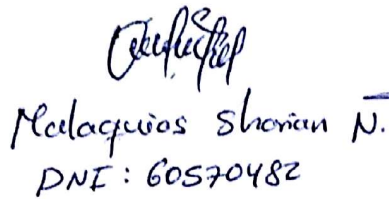 Malaquios Shorian N.
DNI: 60570482